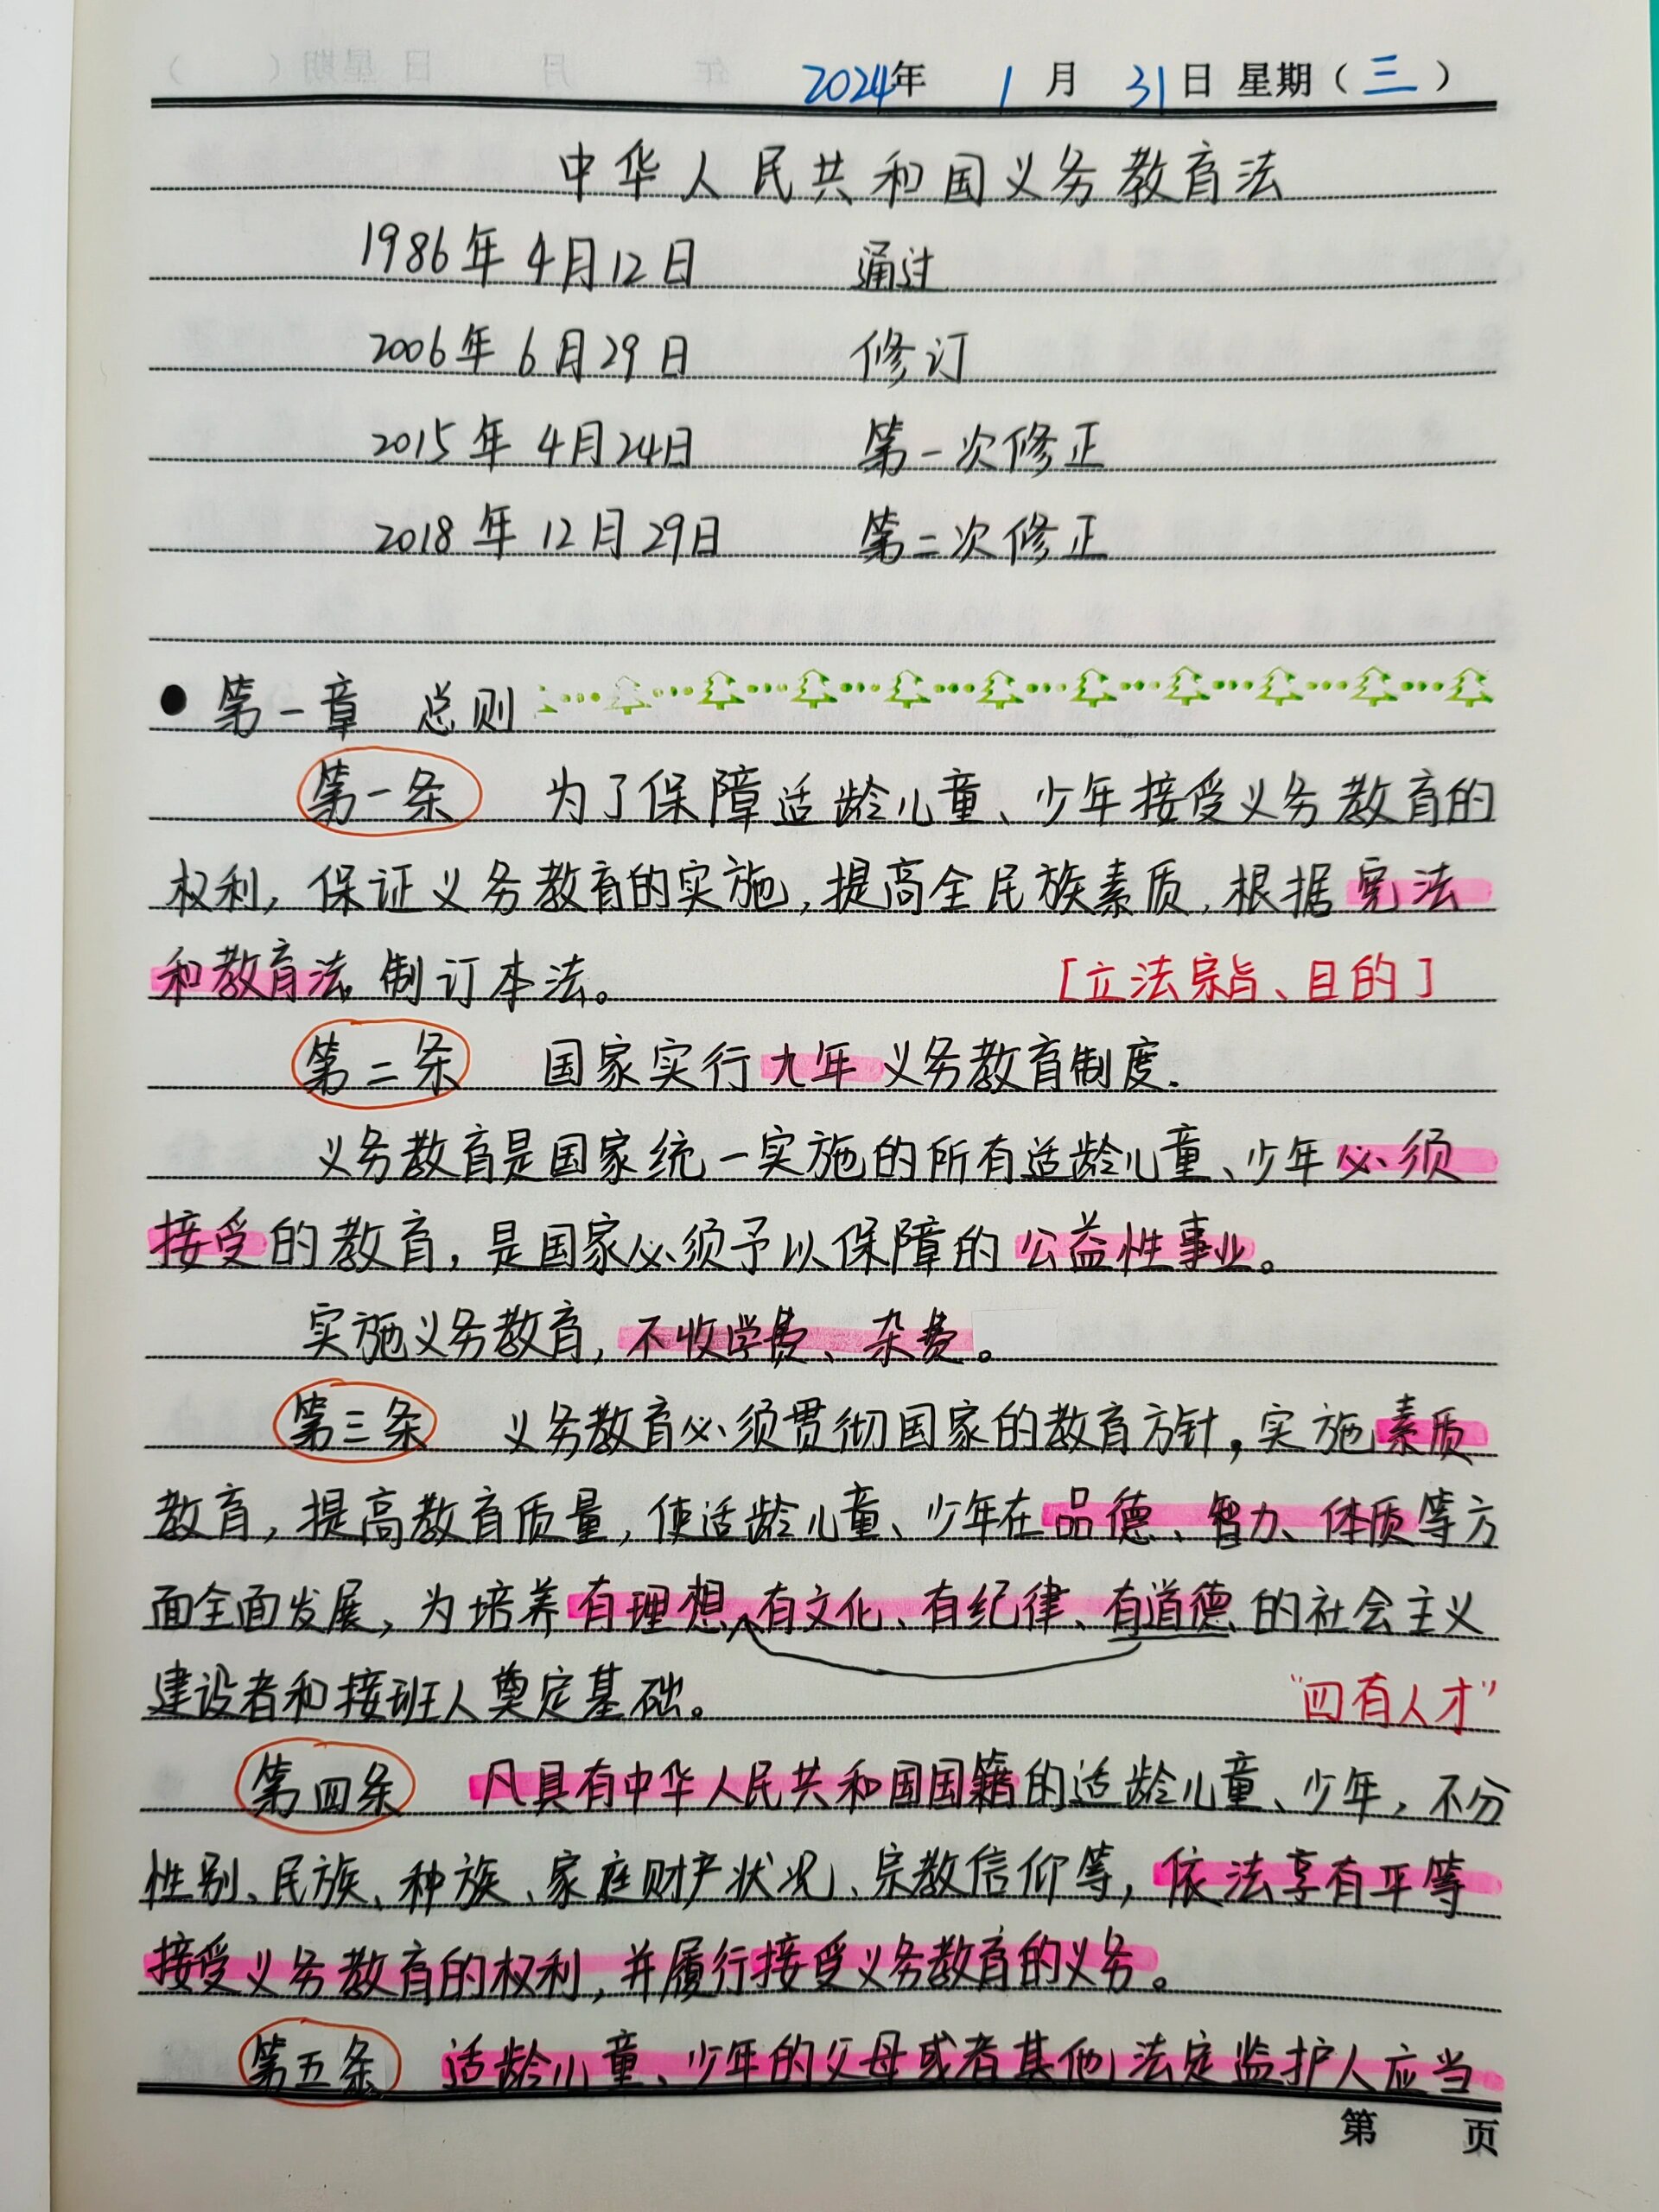 2024年 1月 31日 星期(三)
中华人民共和国义务教育法
1986年4月12日 通过
2006年6月29日 修订
2015年4月24日 第一次修正
2018年12月29日 第二次修正
第一章 总则
第一条 为了保障适龄儿童、少年接受义务教育的
权利,保证义务教育的实施,提高全民族素质,根据宪法
和教育法,制订本法。 [立法宗旨、目的]
第二条 国家实行九年义务教育制度.
义务教育是国家统一实施的所有适龄儿童、少年必须
接受的教育,是国家必须予以保障的公益性事业。
实施义务教育,不收学费、杂费。
第三条 义务教育必须贯彻国家的教育方针,实施素质
教育,提高教育质量,使适龄儿童、少年在品德、智力、体质等方
面全面发展,为培养有理想、有文化、有纪律、有道德的社会主义
建设者和接班人奠定基础。 “四有人才”
第四条 凡具有中华人民共和国国籍的适龄儿童、少年,不分
性别、民族、种族、家庭财产状况、宗教信仰等,依法享有平等
接受义务教育的权利,并履行接受义务教育的义务。
第五条 适龄儿童、少年的父母或者其他法定监护人应当
第 页